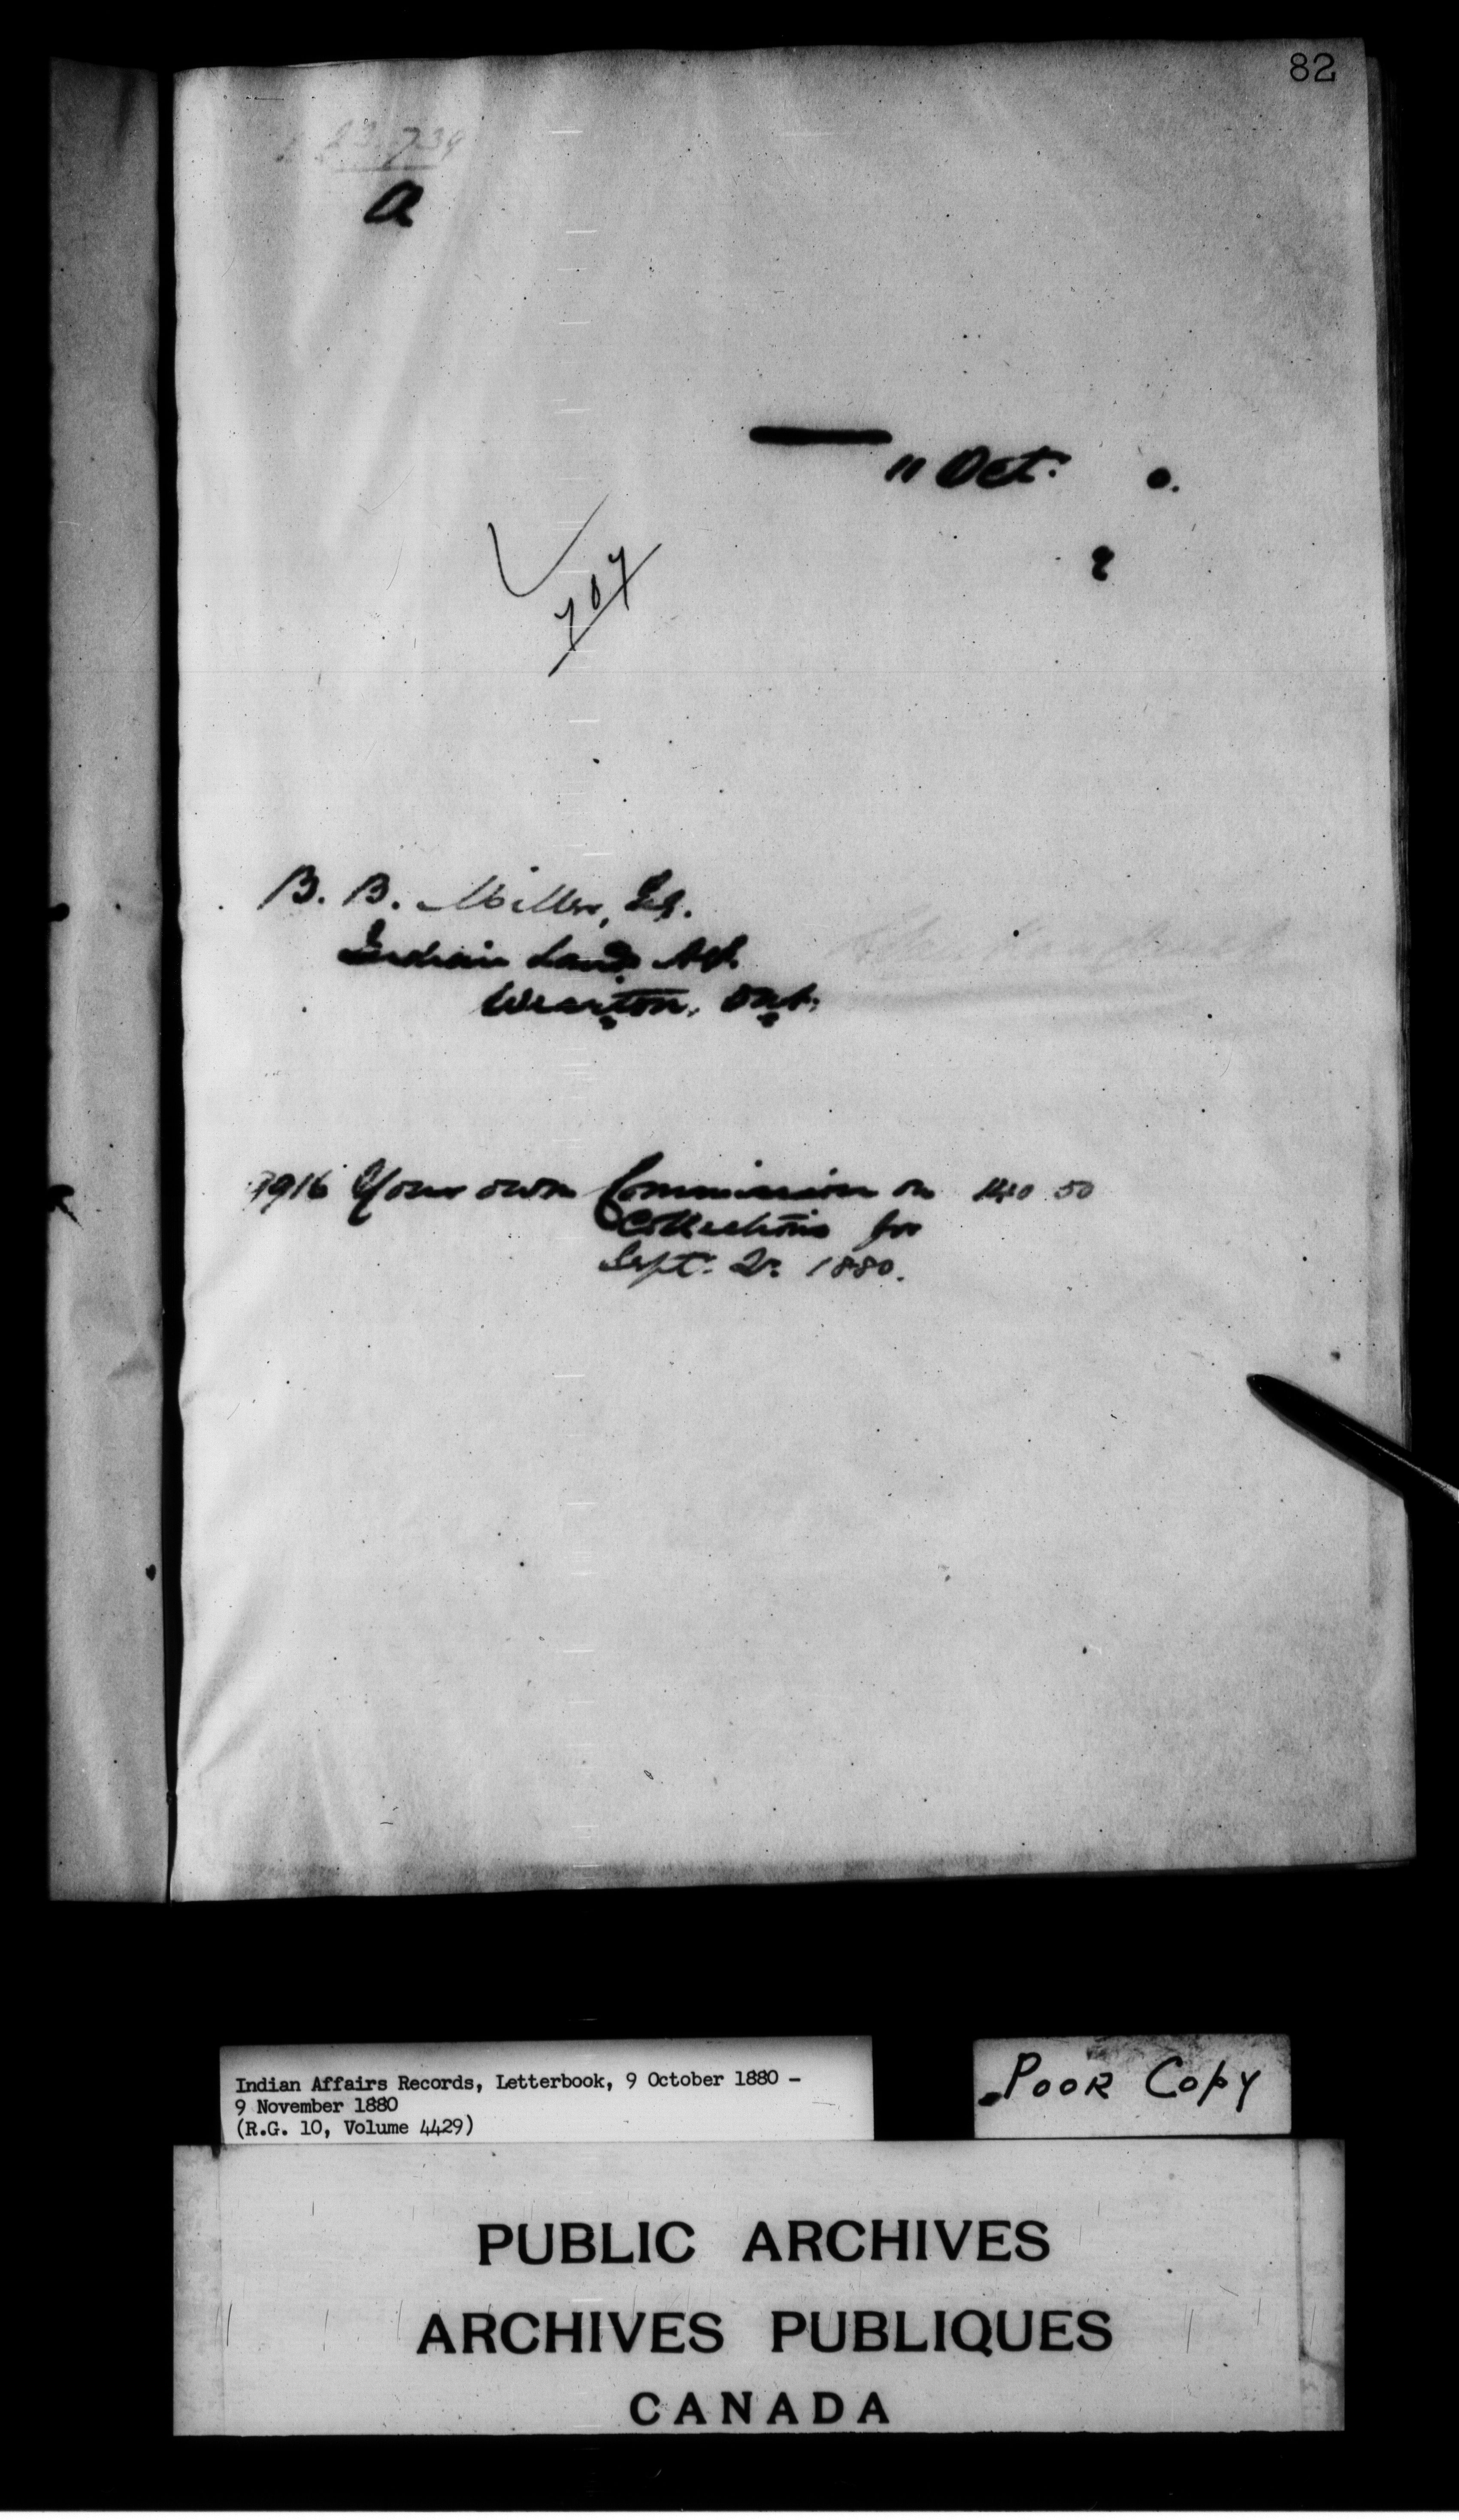 82
a
11 Oct. 0.
2
707
B. B. Miller, Esq.
Indian Land Agt.
Wiarton, Ont.
7916 Your own Commission on 140 50
Collections for
Sept. Qr. 1880.
Indian Affairs Records, Letterbook, 9 October 1880 -
9 November 1880
(R.G. 10, Volume 4429)
Poor Copy
PUBLIC ARCHIVES
ARCHIVES PUBLIQUES
CANADA